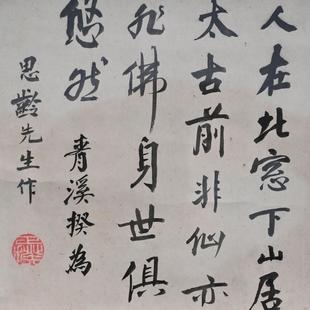 人在北窓下山居
太古前非仙亦
非佛身世俱
悠然
青溪揆為
思齡先生作